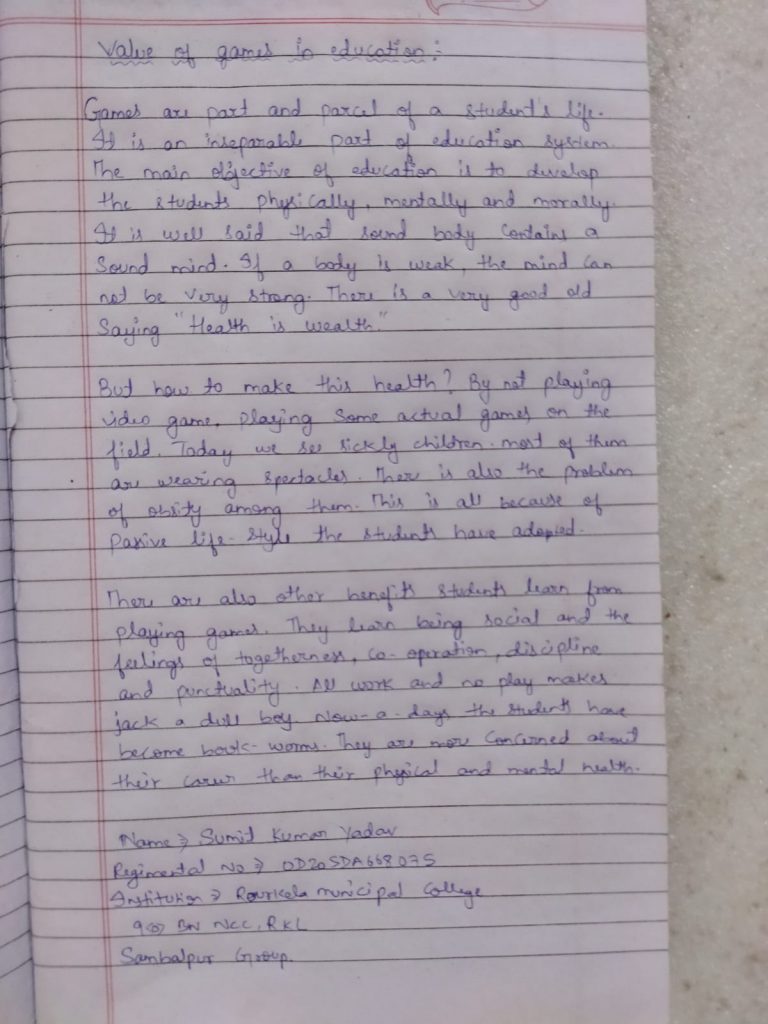 Value of games in education:
Games are part and parcel of a student's life.
It is an inseparable part of education system.
The main objective of education is to develop
the students physically, mentally and morally.
It is well said that sound body contains a
Sound mind. If a body is weak, the mind can
not be very strong. There is a very good old
Saying "Health is wealth."
But how to make this health? By not playing
video game, playing some actual games on the
field. Today we see sickly children. most of them
are wearing spectacles. There is also the problem
of obsity among them. This is all because of
passive life-style the students have adopted.
There are also other benefits students learn from
playing games. They learn being social and the
feelings of togetherness, co-operation, discipline
and punctuality. All work and no play makes
jack a dull boy. Now-a-days the students have
become book-worms. They are more concerned about
their career than their physical and mental health.
Name → Sumit Kumar Yadav
Regimental No → OD20SDA668075
Institution → Rourkela municipal College
BN NCC, RKL
Sambalpur Group.